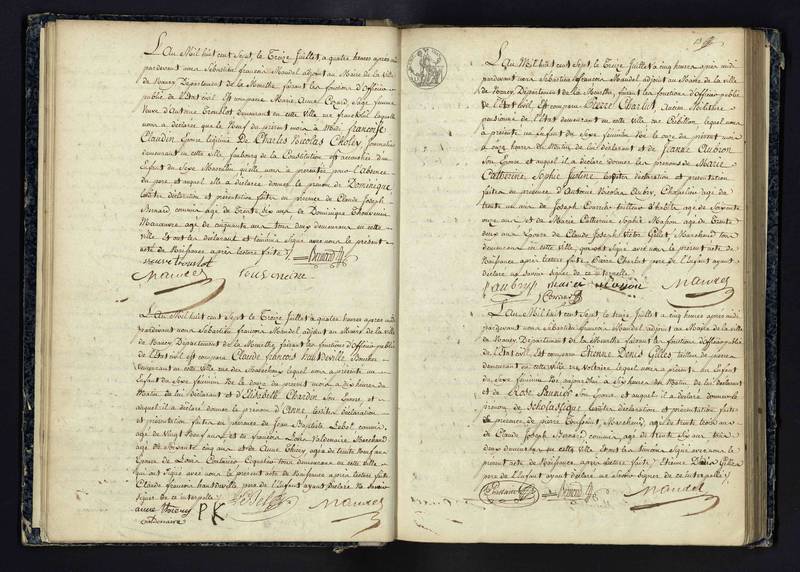 L'an Mil huit cent Sept, le Treize Juillet, à quatre heures après midi
pardevant nous Sébastien françois Mandel adjoint au Maire de la Ville
de Nancy, Département de la Meurthe, faisant les fonctions d'Officier public
de l'Etat civil. Est comparue Marie Anne Sage femme
Veuve d'Antoine demeurant en cette Ville laquelle
nous a déclaré que le Neuf du présent mois à Midi françoise
Claudin Epouse légitime De Charles Nicolas Choley, Journalier
demeurant en cette Ville faubourg de la Constitution est accouchée d'un
Enfant du Sexe Masculin qu'elle nous a présenté pour l'absence
du pere, et auquel elle a déclaré donner le prenom de Dominique
lesdites déclaration et présentation faites en présence de Claude Joseph
Bernard, commis âgé de Trente six ans de Dominique Thouvenin
Manœuvre âgé de cinquante ans tous deux demeurans en cette
ville. Et ont les déclarant et témoins Signé avec nous le présent
acte de Naissance après lecture faite
Bernard
Mandel
L'an Mil huit cent Sept, le Treize Juillet à quatre heures après midi
pardevant nous Sébastien françois Mandel adjoint au Maire de la ville
de Nancy, Département de la Meurthe, faisant les fonctions d'Officier public
de l'Etat civil, est comparu Claude françois hautdeville Boucher
demeurant en cette Ville rue des Maréchaux lequel nous a présenté un
Enfant du Sexe féminin Né le douze du présent mois à dix heures du
Matin de lui déclarant et d'Elisabeth Chardin Son Epouse, et
auquel il a déclaré donner le prenom d'Anne lesdites déclaration
et présentation faites en présence de Jean Baptiste Lebel commis
âgé de Vingt Neuf ans et de françois Louis Valdenaire Marchand
âgé de Soixante cinq ans et de Anne Thiery âgée de trente Neuf ans
Epouse de Louis tous demeurans en cette Ville
qui ont Signé avec nous le présent acte de Naissance après lecture faite
Claude francois hautdeville, pere de l'Enfant ayant déclaré Ne savoir
Signer de ce interpellé
Lebel
anne thiery PK Mandel
valdenaire
L'an Mil huit cent Sept, le Treize Juillet à cinq heures après midi
pardevant nous Sébastien françois Mandel adjoint au Maire de la ville
de Nancy, Département de la Meurthe, faisant les fonctions d'Officier public
de l'Etat civil, Est comparu Pierre Charlot, Ancien Militaire
pensionné de l'Etat demeurant en cette ville rue Crébillon lequel nous
à présenté un Enfant du Sexe féminin Né le onze du présent mois
à onze heures du Matin de lui déclarant et de Jeanne Aubron
Son Epouse et auquel il a déclaré donner les prenoms de Marie
Catherine, Sophie Justine lesdites déclaration et présentation
faites en présence d'Antoine Nicolas Aubry, Chapelier âgé de
trente un ans de Joseph tailleur d'habits, âgé de Soixante
onze ans et de Marie Catherine Sophie Masson âgée de trente
deux ans Epouse de Claude Joseph Victor Gillet, Marchand tous
demeurans en cette ville, qui ont Signé avec nous le présent acte de
Naissance après lecture faite. Pierre Charlot pere de l'Enfant ayant
déclaré Ne savoir Signer de ce interpellé
aubry marie masson Mandel
L'an Mil huit cent Sept, le treize Juillet à cinq heures après midi
pardevant nous Sébastien françois Mandel adjoint au Maire de la ville
de Nancy, Département de la Meurthe faisant les fonctions d'Officier public
de l'Etat civil, Est comparu Etienne Denis Gilles tailleur de pierre
demeurant en cette ville rue Voltaire lequel nous a présenté un Enfant
du Sexe féminin Né aujourd'hui à dix heures du Matin de lui déclarant
et de Rose Saunier Son Epouse, et auquel il a déclaré donner le
prenom de Scholastique lesdites déclaration et présentation faites
en présence de pierre Constant, Marchand, âgé de trente ans
de Claude Joseph Bernard, commis, âgé de trente Six ans tous
deux demeurans en cette Ville. Et ont les témoins Signé avec nous le
présent acte de Naissance après lecture faite, Etienne Denis Gilles
pere de l'Enfant ayant déclaré ne Savoir Signer de ce interpellé
Constant Bernard Mandel